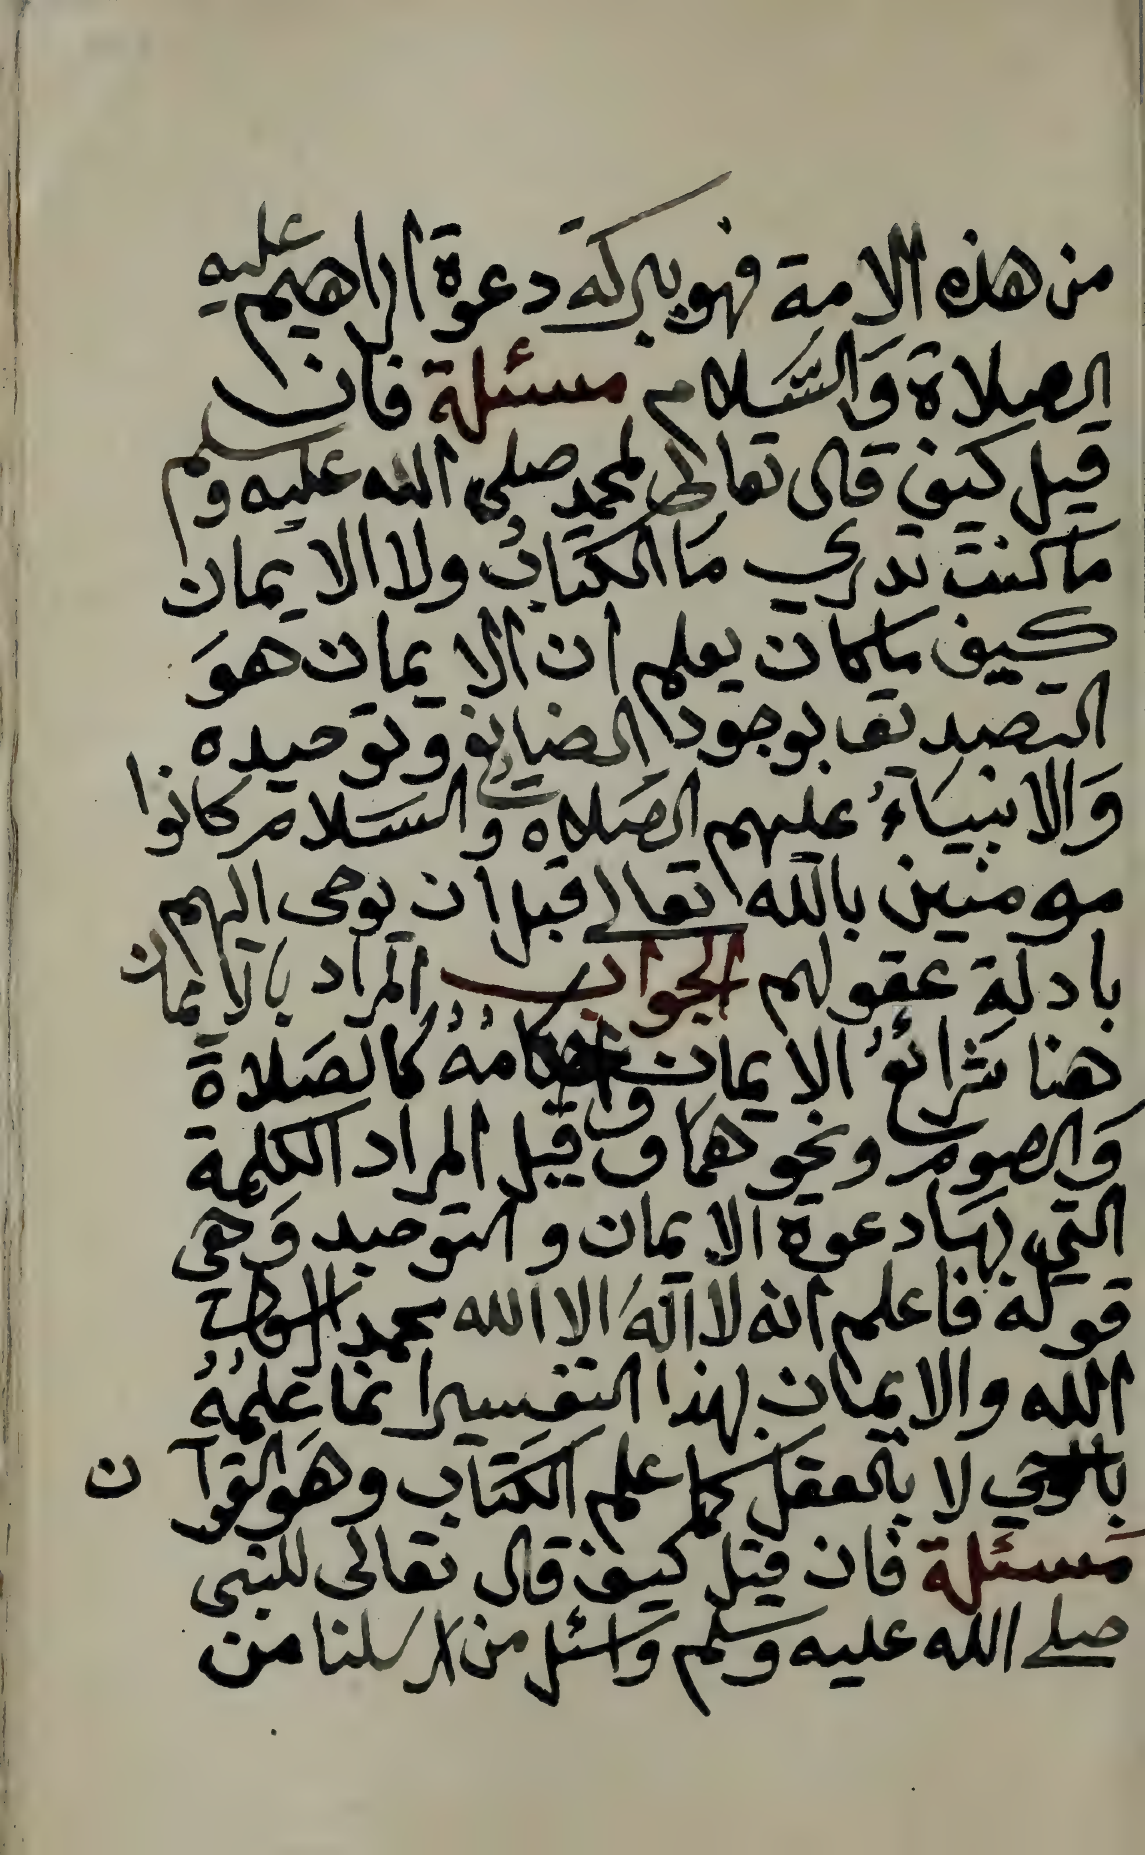 من هذه الامة فهو ببركة دعوة ابراهيم عليه
الصلاة وَالسَّلام مسئلة فان
قيل كيف قال تعالى لمحمد صلى الله عليه وسلم
مَا كنت تدري مَا الكتَابُ ولا الايمان
كيف ماكان يعلم ان الايمان هوَ
التصديق بوجود الصانع وتوحيده
وَالانبيَاءُ عليهم الصَلاه والسَلام كانوا
مومنين بالله تعالى قبل ان يوحى اليهم
بادلة عقولهم الجواب المراد بالايمان
هنا شَرائعُ الايمان واحكامُهُ كالصَلاة
وَالصوم ونحوهمَا وقيل المراد الكلمة
التي بهَا دعوة الايمان والتوحيد وَهي
قوله فاعلم انه لا الَهَ الا الله محمد رسول
الله والايمان بهذا التفسير انما عَلمهُ
بالوحي لا بالعقل كما علم الكتَاب وهوَ القرآن
مَسئلة فان قيل كيف قال تعالى للنبى
صلى الله عليه وسَلم وَاسئل من ارسلنا من